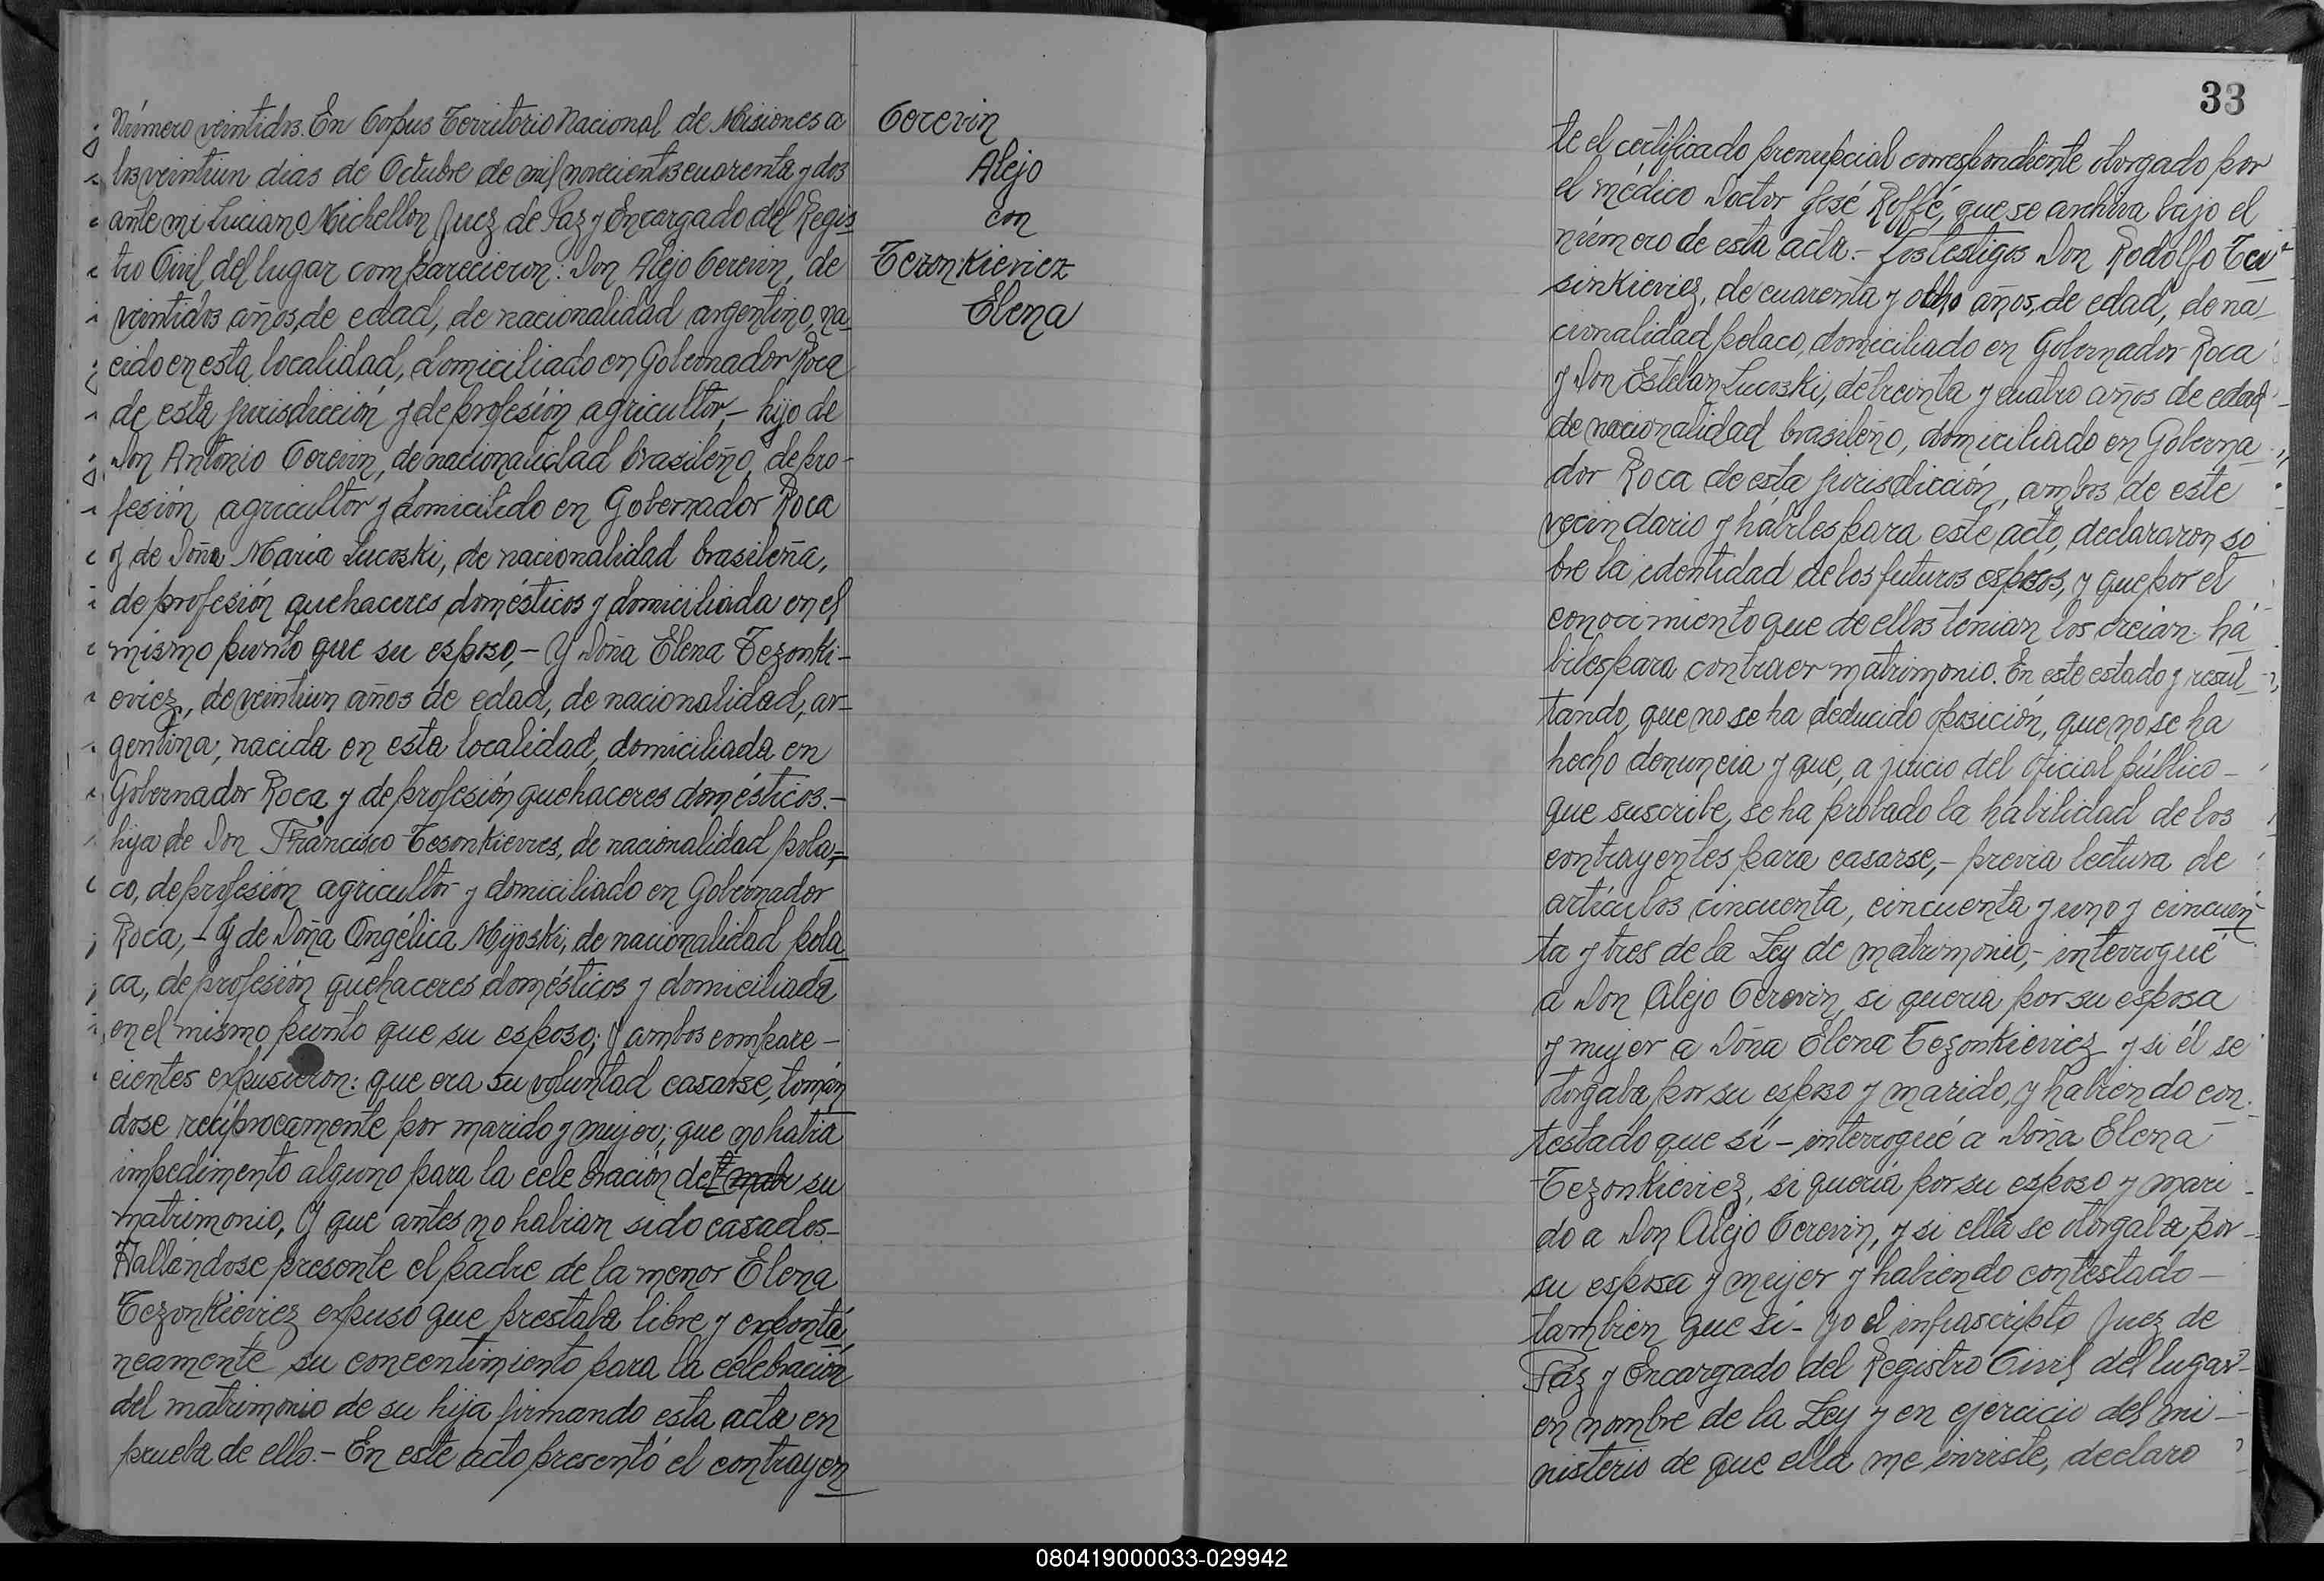 Número veintidos. En Corpus Territorio Nacional de Misiones a
los veintiun dias de Octubre de mil novecientos cuarenta y dos
ante mi Luciano Michellon Juez de Paz y Encargado del Regis
tro Civil del lugar comparecieron: Don Alejo Cerevin, de
veintidos años, de edad, de nacionalidad argentino, na
cido en esta localidad, domiciliado en Gobernador Roca
de esta jurisdicción y de profesión agricultor,- hijo de
Don Antonio Cerevin, de nacionalidad brasileño, de pro-
fesión agricultor y domicilido en Gobernador Roca
y de Doña Maria Lucoski, de nacionalidad brasileña,
de profesión quehaceres domésticos y domiciliada en el
mismo punto que su esposo,- Y Doña Elena Tezonki-
eviez, de veintiun años de edad, de nacionalidad, ar-
gentina, nacida en esta localidad, domiciliada en
Gobernador Roca y de profesión quehaceres domésticos.-
hija de Don Francisco Tesonkievies, de nacionalidad pola-
co, de profesión agricultor y domiciliado en Gobernador
Roca,- Y de Doña Angélica Mijoski, de nacionalidad pola
ca, de profesión quehaceres domésticos y domiciliada
en el mismo punto que su esposo; Y ambos compare-
cientes expusieron: que era su voluntad casarse, tomán
dose recíprocamente por marido y mujer; que no habia
impedimento alguno para la cele bración de su
matrimonio, Y que antes no habian sido casados-
Hallándose presente el padre de la menor Elena
Tezonkieviez expuso que prestaba libre y expontá
neamente su concentimiento para la celebración
del matrimonio de su hija firmando esta acta en
prueba de ello.- En este acto presentó el contrayen
Cerevin
Alejo
con
Tezonkieviez
Elena
33
te el certificado prenupcial correspondiente otorgado por
el médico Doctor José Roffé, que se archiva bajo el
número de esta acta.- Los testigos Don Rodolfo
sinkieviez, de cuarenta y otho años, de edad, de na
cionalidad polaco, domiciliado en Gobernador Roca
y Don Esteban Lucoski, de treinta y cuatro años de edad
de nacionalidad brasileño, domiciliado en Goberna
dor Roca de esta jurisdicción, ambos de este
vecindario y hábiles para este acto, declararon so
bre la identidad de los futuros esposos, y que por el
conocimiento que de ellos tenian los creian há
biles para contraer matrimonio. En este estado y resul
tando, que no se ha deducido oposición, que no se ha
hecho denuncia y que, a juicio del oficial público-
que suscribe, se ha probado la habilidad de los
contrayentes para casarse,- previa lectura de
artículos cincuenta, cincuenta y uno y cincuen
ta y tres de la Ley de matrimonio,- interrogué
a Don Alejo Cerevin, si queria por su esposa
y mujer a Doña Elena Tezonkieviez y si él se
otorgaba por su esposo y marido, y habiendo con
testado que sí- interrogué a Doña Elena
Tezonkieviez, si queria por su esposo y mari
do a Don Alejo Cerevin, y si ella se otorgaba por-
su esposa y mujer y habiendo contestado-
tambien que si- yo el infrascripto Juez de
Paz y Encargado del Registro Civil del lugar-
en nombre de la Ley y en ejercicio del mi-
nisterio de que ella me inviste, declaro
080419000033-029942